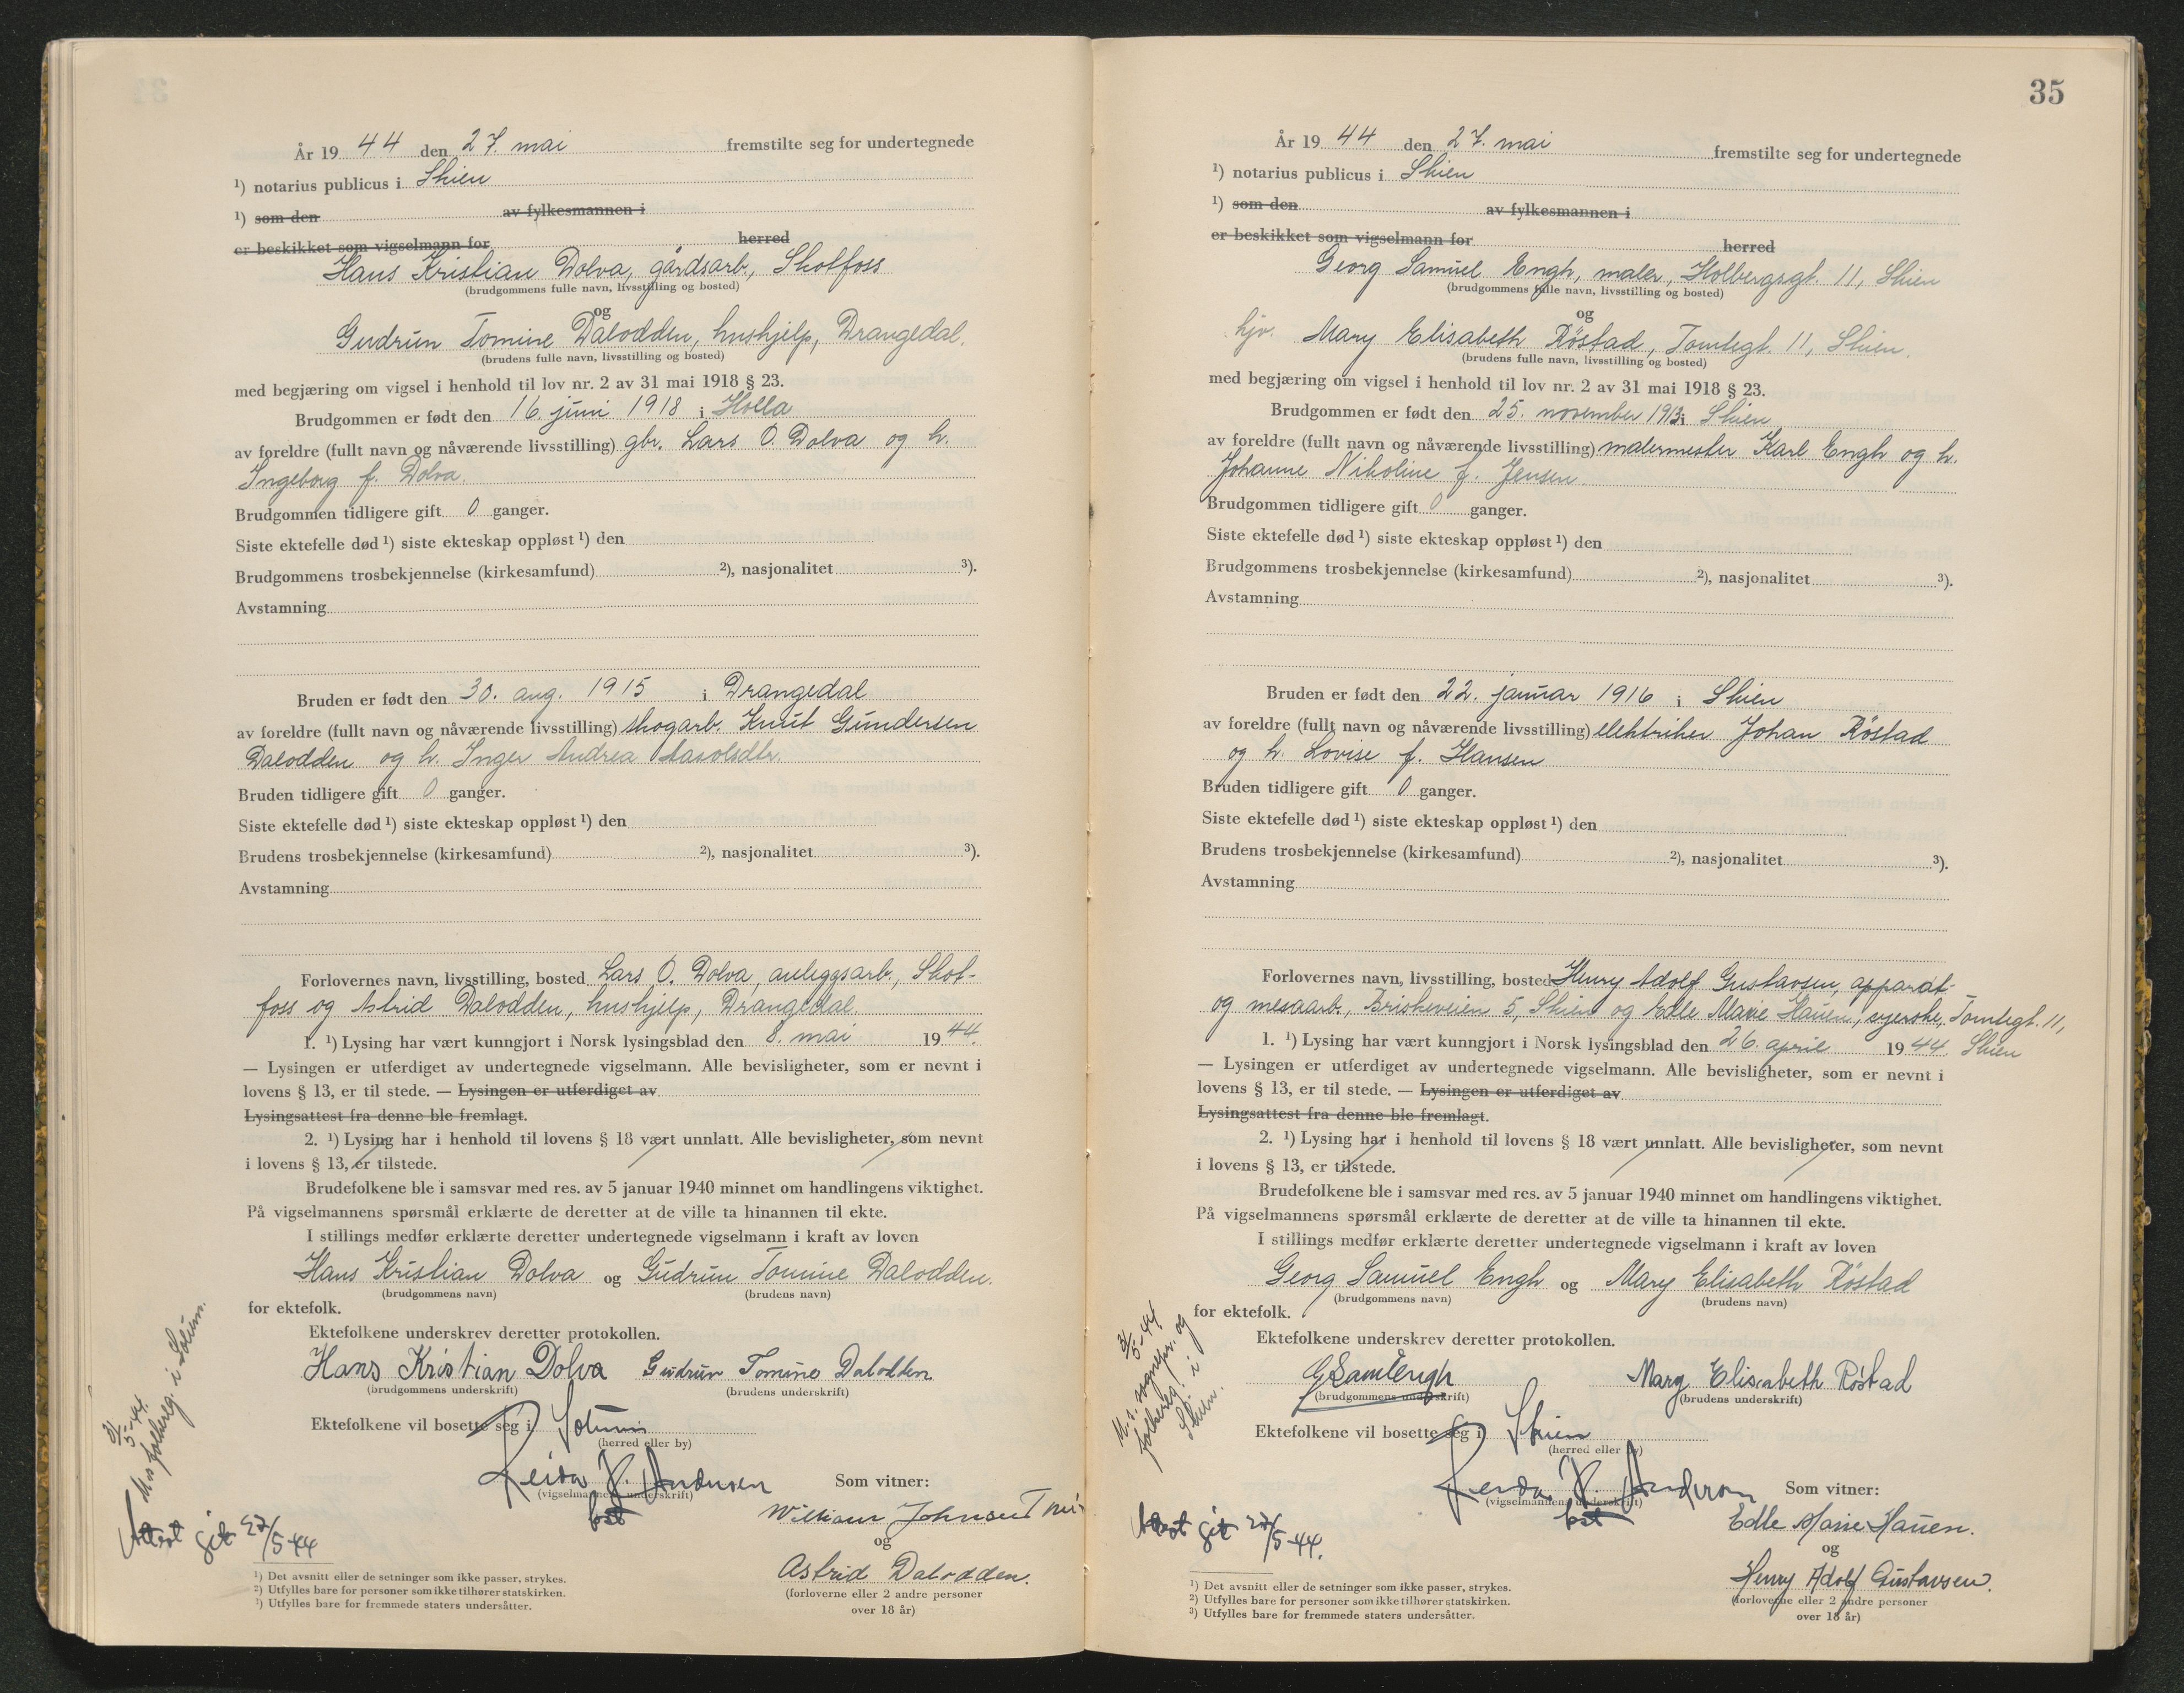 År 19 44 den 27. mai fremstilte seg for undertegnede
1) notarius publicus i Skien
1) som den av fylkesmannen i
er beskikket som vigselmann for herred
Hans Kristian Dolva, gårdsarb., Skotfoss
(brudgommens fulle navn, livsstilling og bosted)
og
Gudrun Tomine Dalodden, hushjelp, Drangedal.
(brudens fulle navn, livsstilling og bosted)
med begjæring om vigsel i henhold til lov nr. 2 av 31 mai 1918 § 23.
Brudgommen er født den 16. juni 1918 i Holla
av foreldre (fullt navn og nåværende livsstilling) gbr. Lars O. Dolva og h.
Ingeborg f. Dolva.
Brudgommen tidligere gift 0 ganger.
Siste ektefelle død 1) siste ekteskap oppløst 1) den
Brudgommens trosbekjennelse (kirkesamfund) 2), nasjonalitet 3).
Avstamning
Bruden er født den 30. aug. 1915 i Drangedal
av foreldre (fullt navn og nåværende livsstilling) skogarb. Knut Gundersen
Dalodden og h. Inger Andrea
Bruden tidligere gift 0 ganger.
Siste ektefelle død 1) siste ekteskap oppløst 1) den
Brudens trosbekjennelse (kirkesamfund) 2), nasjonalitet 3).
Avstamning
Forlovernes navn, livsstilling, bosted Lars O. Dolva, anleggsarb., Skot-
foss og Astrid Dalodden, hushjelp, Drangedal.
1. 1) Lysing har vært kunngjort i Norsk lysingsblad den 8. mai 1944.
— Lysingen er utferdiget av undertegnede vigselmann. Alle bevisligheter, som er nevnt i
lovens § 13, er til stede. — Lysingen er utferdiget av
Lysingsattest fra denne ble fremlagt.
2. 1) Lysing har i henhold til lovens § 18 vært unnlatt. Alle bevisligheter, som nevnt
i lovens § 13, er tilstede.
Brudefolkene ble i samsvar med res. av 5 januar 1940 minnet om handlingens viktighet.
På vigselmannens spørsmål erklærte de deretter at de ville ta hinannen til ekte.
I stillings medfør erklærte deretter undertegnede vigselmann i kraft av loven
Hans Kristian Dolva og Gudrun Tomine Dalodden.
(brudgommens navn) (brudens navn)
for ektefolk.
Ektefolkene underskrev deretter protokollen.
Hans Kristian Dolva Gudrun Tomine Dalodden
(brudgommens underskrift) (brudens underskrift)
Ektefolkene vil bosette seg i Solum
(herred eller by)
Reidar K. Andersen Som vitner:
(vigselmannens underskrift)
bst
William Johnsen
og
Astrid Dalodden.
(forloverne eller 2 andre personer
over 18 år)
31/5-44.
M. s. folkereg. i Solum.
Attest git 27/5-44
1) Det avsnitt eller de setninger som ikke passer, strykes.
2) Utfylles bare for personer som ikke tilhører statskirken.
3) Utfylles bare for fremmede staters undersåtter.
35
År 19 44 den 27. mai fremstilte seg for undertegnede
1) notarius publicus i Skien
1) som den av fylkesmannen i
er beskikket som vigselmann for herred
Georg Samuel Engh, maler, Holbergsgt. 11, Skien
(brudgommens fulle navn, livsstilling og bosted)
og
hjv. Mary Elisabeth Röstad, Tomtegt. 11, Skien.
(brudens fulle navn, livsstilling og bosted)
med begjæring om vigsel i henhold til lov nr. 2 av 31 mai 1918 § 23.
Brudgommen er født den 25. november 1913 i Skien
av foreldre (fullt navn og nåværende livsstilling) malermester Karl Engh og h.
Johanne Nikoline f. Jensen.
Brudgommen tidligere gift 0 ganger.
Siste ektefelle død 1) siste ekteskap oppløst 1) den
Brudgommens trosbekjennelse (kirkesamfund) 2), nasjonalitet 3).
Avstamning
Bruden er født den 22. januar 1916 i Skien
av foreldre (fullt navn og nåværende livsstilling) elektriker Johan Röstad
og h. Lovise f. Hansen
Bruden tidligere gift 0 ganger.
Siste ektefelle død 1) siste ekteskap oppløst 1) den
Brudens trosbekjennelse (kirkesamfund) 2), nasjonalitet 3).
Avstamning
Forlovernes navn, livsstilling, bosted Henry Adolf Gustavsen, apparat-
og mesaarb., Briskeveien 5, Skien og Edle Marie Hauen, syerske, Tomtegt. 11,
1. 1) Lysing har vært kunngjort i Norsk lysingsblad den 26. april 1944. Skien
— Lysingen er utferdiget av undertegnede vigselmann. Alle bevisligheter, som er nevnt i
lovens § 13, er til stede. — Lysingen er utferdiget av
Lysingsattest fra denne ble fremlagt.
2. 1) Lysing har i henhold til lovens § 18 vært unnlatt. Alle bevisligheter, som nevnt
i lovens § 13, er tilstede.
Brudefolkene ble i samsvar med res. av 5 januar 1940 minnet om handlingens viktighet.
På vigselmannens spørsmål erklærte de deretter at de ville ta hinannen til ekte.
I stillings medfør erklærte deretter undertegnede vigselmann i kraft av loven
Georg Samuel Engh og Mary Elisabeth Röstad
(brudgommens navn) (brudens navn)
for ektefolk.
Ektefolkene underskrev deretter protokollen.
G Saml Engh Mary Elisabeth Röstad
(brudgommens underskrift) (brudens underskrift)
Ektefolkene vil bosette seg i Skien
(herred eller by)
Reidar K. Andersen Som vitner:
(vigselmannens underskrift)
bst
Edle Marie Hauen.
og
Henry Adolf Gustavsen.
(forloverne eller 2 andre personer
over 18 år)
31/5-44
M. s. sognepr. og
folkereg. i
Skien.
Attest git 27/5-44.
1) Det avsnitt eller de setninger som ikke passer, strykes.
2) Utfylles bare for personer som ikke tilhører statskirken.
3) Utfylles bare for fremmede staters undersåtter.